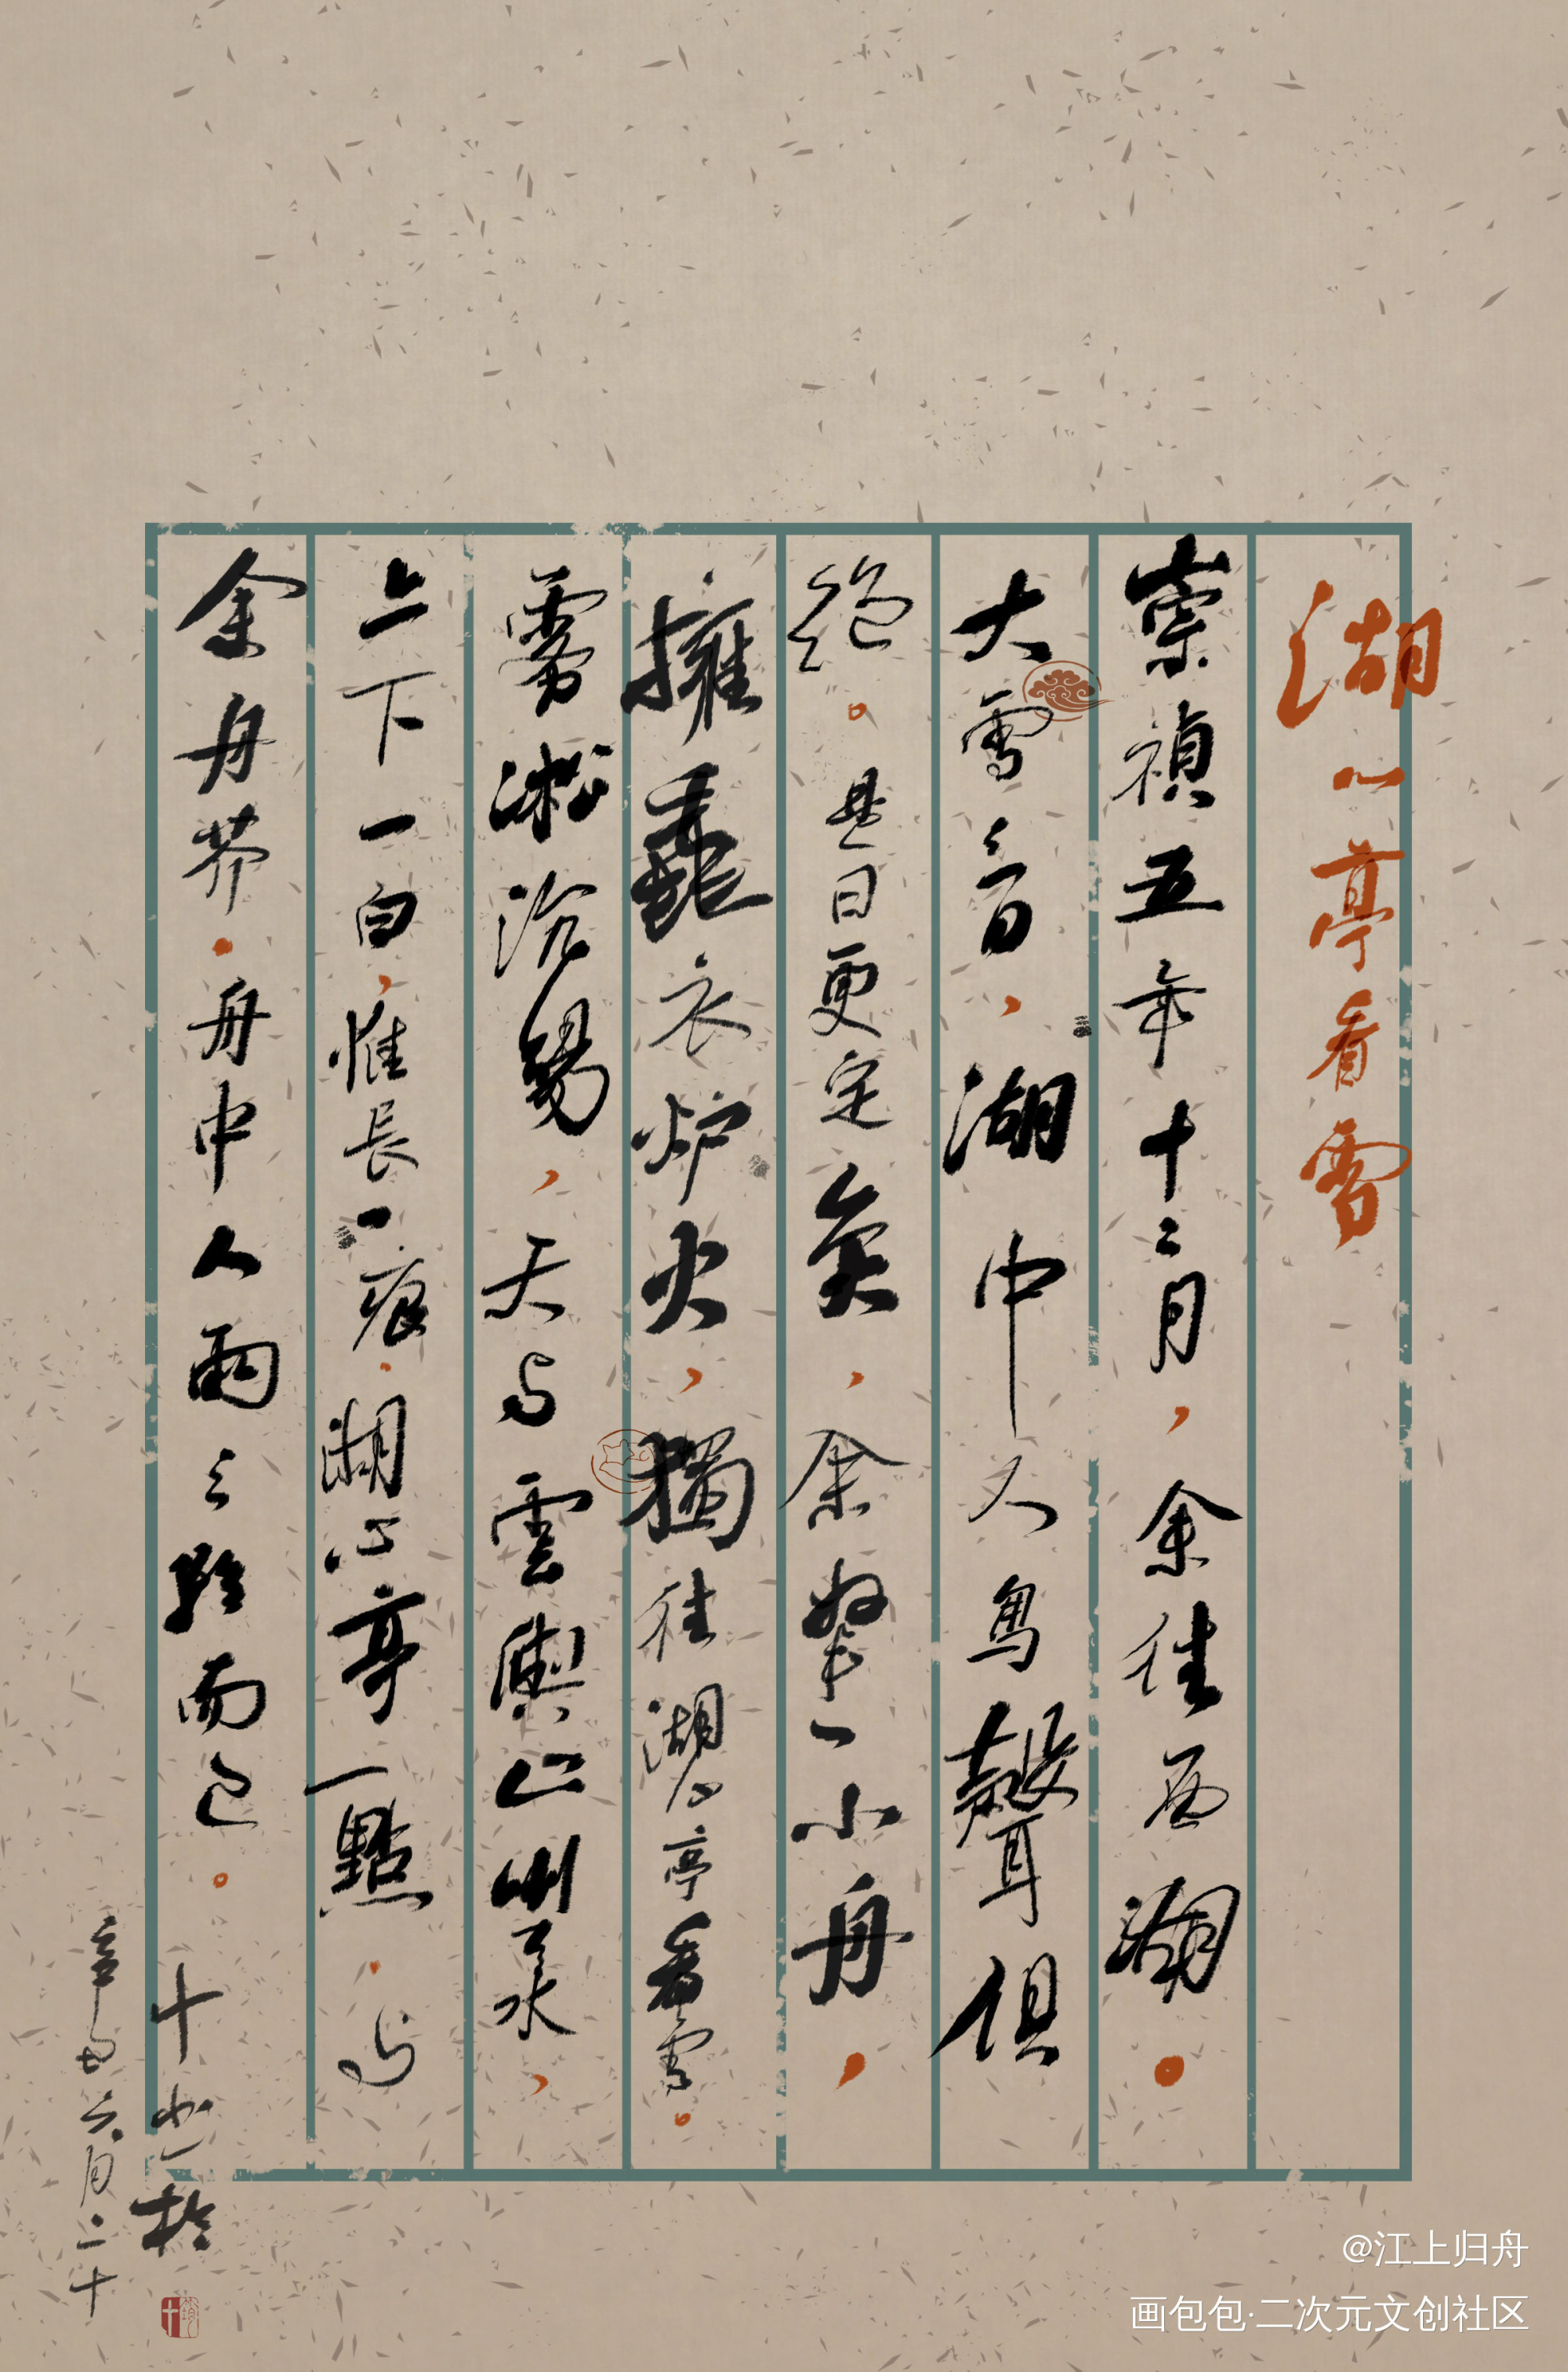 湖心亭看雪
崇禎五年十二月，余往西湖。
大雪三日，湖中人鳥聲俱
絕。是日更定矣，余拏一小舟，
擁毳衣炉火，獨往湖心亭看雪。
霧凇沆碭，天与雲與山與水，
上下一白，惟長一痕。湖心亭一點。与
余舟芥。舟中人兩三粒而已。
十
辛丑六月二十
@江上归舟
画包包·二次元文创社区